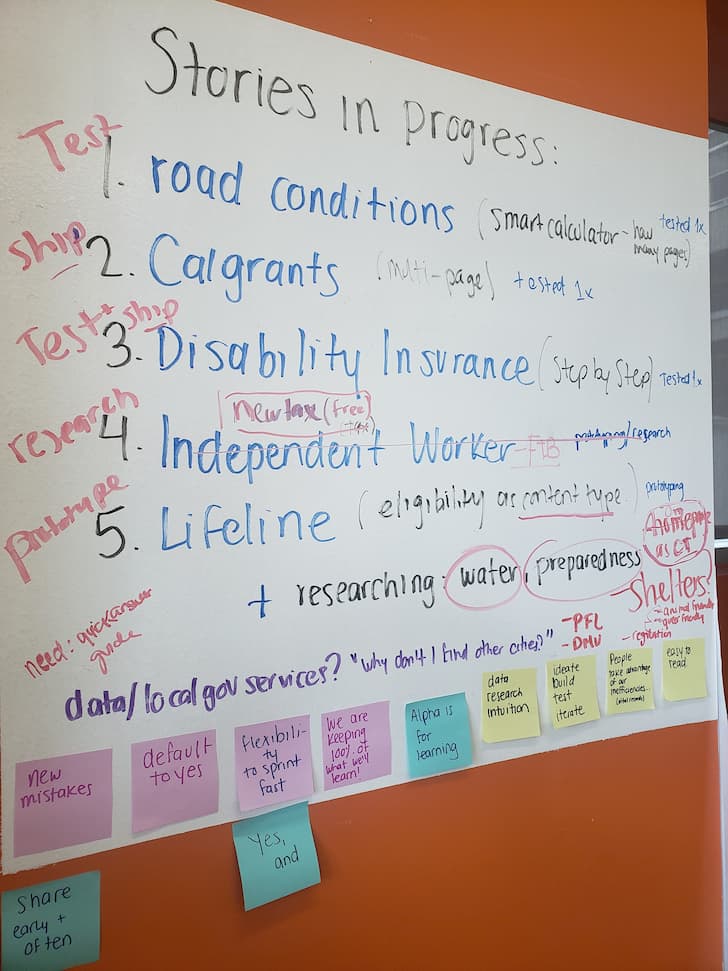 Stories in progress:
Test
1. road conditions (smart calculator - how many pages) tested 1x
ship
2. Calgrants (multi-page) tested 1x
Test + ship
3. Disability Insurance (Step by Step) Tested 1x
new (free)
research
4. Independent Worker - FTB prototyping/research
prototype
5. Lifeline (eligibility as content type) prototyping
+ researching: water, preparedness
homepage
as CT
- Shelters?
- animal friendly
- friendly
- registration
need: quick answer
guide
data/local gov services? "Why don't I find other cities?"
- PFL
- DMV
new
mistakes
default
to yes
flexibili-
ty
to sprint
fast
We are
keeping
100% of
what we'll
learn!
Alpha is
for
learning
data
research
intuition
ideate
build
test
iterate
People
take advantage
of our
inefficiencies...
easy to
read
Yes,
and
Share
early +
often